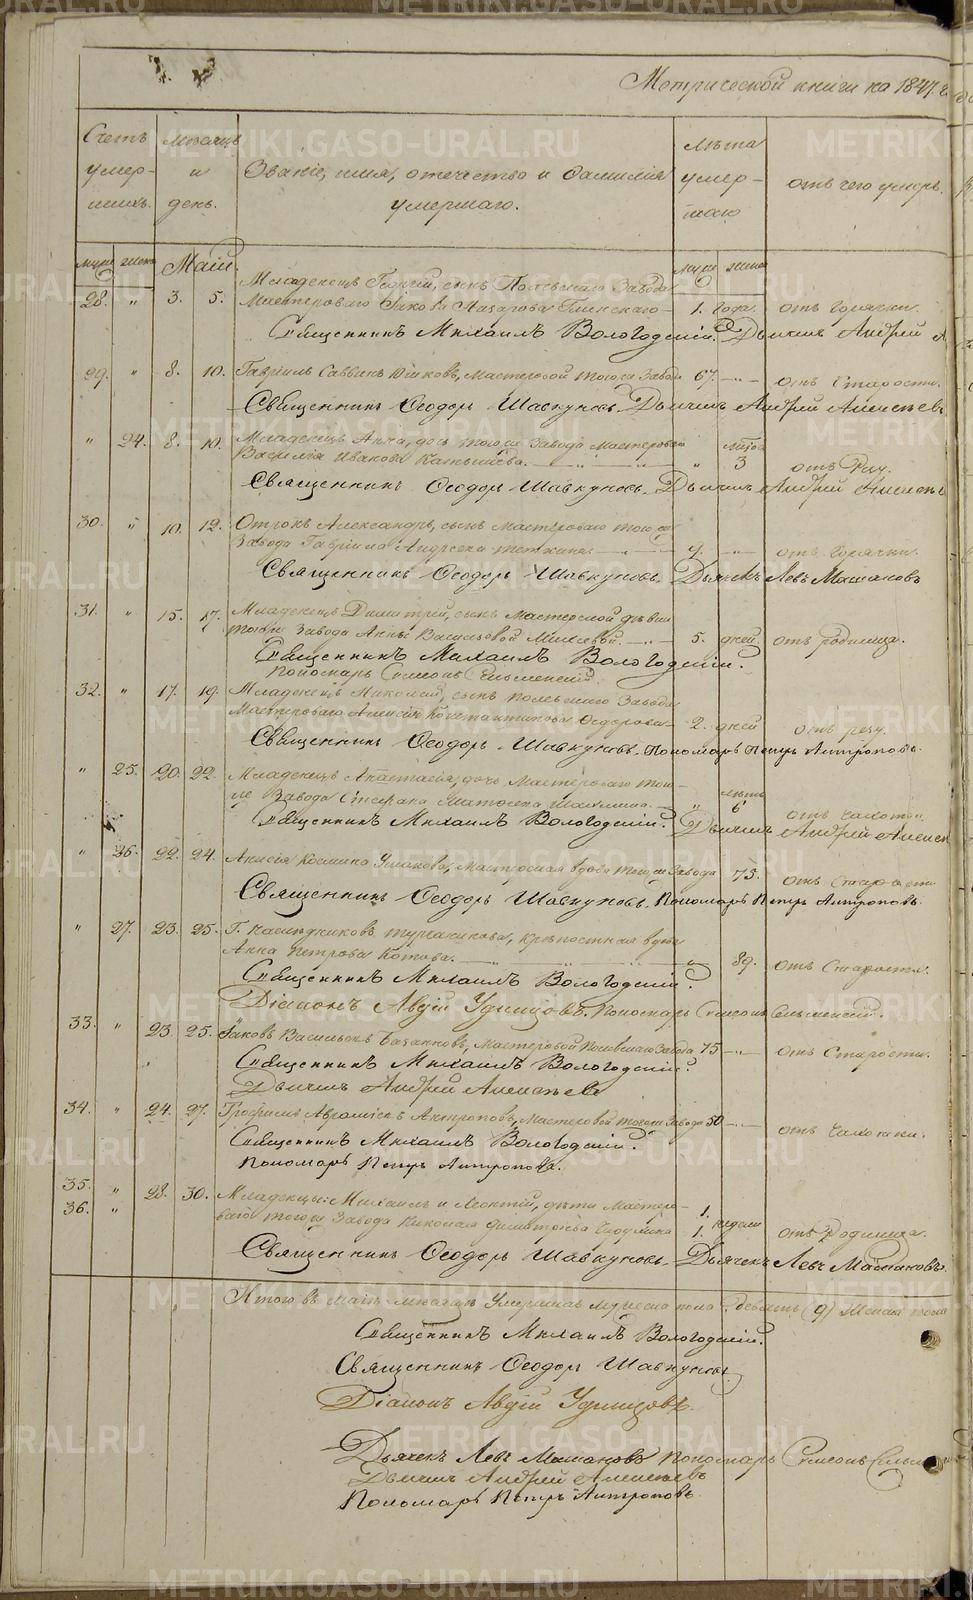 Метрической книги на 1847 г.
Счетъ умер- шихъ.
Мѣсяцъ и день.
Званіе, имя, отечество и фамилія умершаго.
Лѣта умер- шаго
отъ чего умеръ.
муж жен Маій. муж жен
28. " 3. 5. Младенецъ Георгій, сынъ Полевскаго Завода
Мастероваго Іякова Назарова 1. года. отъ Горячки.
Священникъ Михаилъ Вологодскій. Дьячекъ Андрей
29. " 8. 10. Гавріилъ Саввинъ Юшковъ, Мастеровой тогоже Завода 67. — " — отъ Старости.
Священникъ Ѳеодоръ Шавкуновъ. Дьячекъ Андрей Алексѣевъ
" 24. 8. 10. Младенецъ Анна, дочь тогоже Завода Мастероваго
Василія Иванова " лѣтъ 3 отъ
Священникъ Ѳеодоръ Шавкуновъ. Дьячекъ Андрей Алексѣевъ
30. " 10. 12. Отрокъ Александръ, сынъ Мастероваго тогоже
Завода Гавріила Андреева 9. — " — отъ Горячки.
Священникъ Ѳеодоръ Шавкуновъ. Дьячекъ Левъ Машановъ
31. " 15. 17. Младенецъ Димитрій, сынъ Мастерской дѣвки
тогоже Завода Анны Васильевой 5. дней отъ родимца.
Священникъ Михаилъ Вологодскій.
Пономарь Симеонъ
32. " 17. 19. Младенецъ Николай, сынъ Полевскаго Завода
Мастероваго Алексія Константинова Ѳедорова 2. дней отъ
Священникъ Ѳеодоръ Шавкуновъ. Пономарь Петръ Антроповъ.
" 25. 20. 22. Младенецъ Анастасія, дочь Мастероваго того-
же Завода Стефана " лѣтъ 6 отъ чахотки
Священникъ Михаилъ Вологодскій. Дьячекъ Андрей Алексѣевъ
" 26. 22. 24. Анисія Космина Ушакова, Мастерская вдова тогоже Завода 75. отъ Старости
Священникъ Ѳеодоръ Шавкуновъ. Пономарь Петръ Антроповъ.
" 27. 23. 25. Г. наслѣдниковъ Турчанинова, крѣпостная вдова
Анна Петрова Котова. " 89. отъ Старости.
Священникъ Михаилъ Вологодскій.
Діаконъ Авдій Удинцовъ. Пономарь Симеонъ
33. " 23. 25. Іаковъ Васильевъ Мастеровой Полевскаго Завода 75 — " — отъ Старости.
Священникъ Михаилъ Вологодскій.
Дьячекъ Андрей Алексѣевъ
34. " 24. 27. Трофимъ Антроповъ, Мастеровой тогоже Завода 50 — " — отъ Чахотки.
Священникъ Михаилъ Вологодскій.
Пономарь Петръ Антроповъ.
35. " 28. 30. Младенцы: Михаилъ и Леонтій, дѣти Мастеро- 1.
36. " ваго тогоже Завода Николая Димитріева 1. недели отъ Родимца.
Священникъ Ѳеодоръ Шавкуновъ. Дьячекъ Левъ Машановъ.
Итого въ Маіѣ мѣсяцѣ Умершихъ мужеска пола девять (9) Женска пола
Священникъ Михаилъ Вологодскій.
Священникъ Ѳеодоръ Шавкуновъ
Діаконъ Авдій Удинцовъ.
Дьячекъ Левъ Машановъ Пономарь Симеонъ
Дьячекъ Андрей Алексѣевъ
Пономарь Петръ Антроповъ.
METRIKI.GASO-URAL.RU